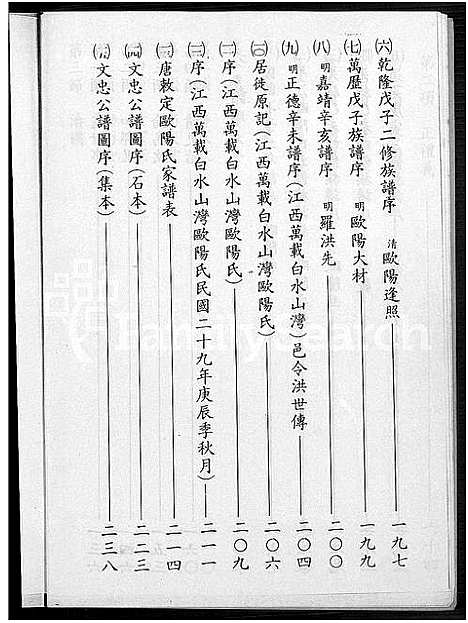 (六)乾隆戊子二修族譜序 清 歐陽逢照 一九七
(七)萬歷戊子族譜序 明 歐陽大材 一九九
(八)明嘉靖辛亥譜序 明 羅洪先 二〇〇
(九)明正德辛未譜序(江西萬載白水山灣)邑令洪世傳 二〇四
(一〇)居徙原記(江西萬載白水山灣歐陽氏) 二〇六
(一一)序(江西萬載白水山灣歐陽氏) 二〇九
(一二)序(江西萬載白水山灣歐陽氏民國二十九年庚辰季秋月) 二一一
(一三)唐敕定歐陽氏家譜表 二一四
(一四)文忠公譜圖序(石本) 二二三
(一五)文忠公譜圖序(集本) 二三八